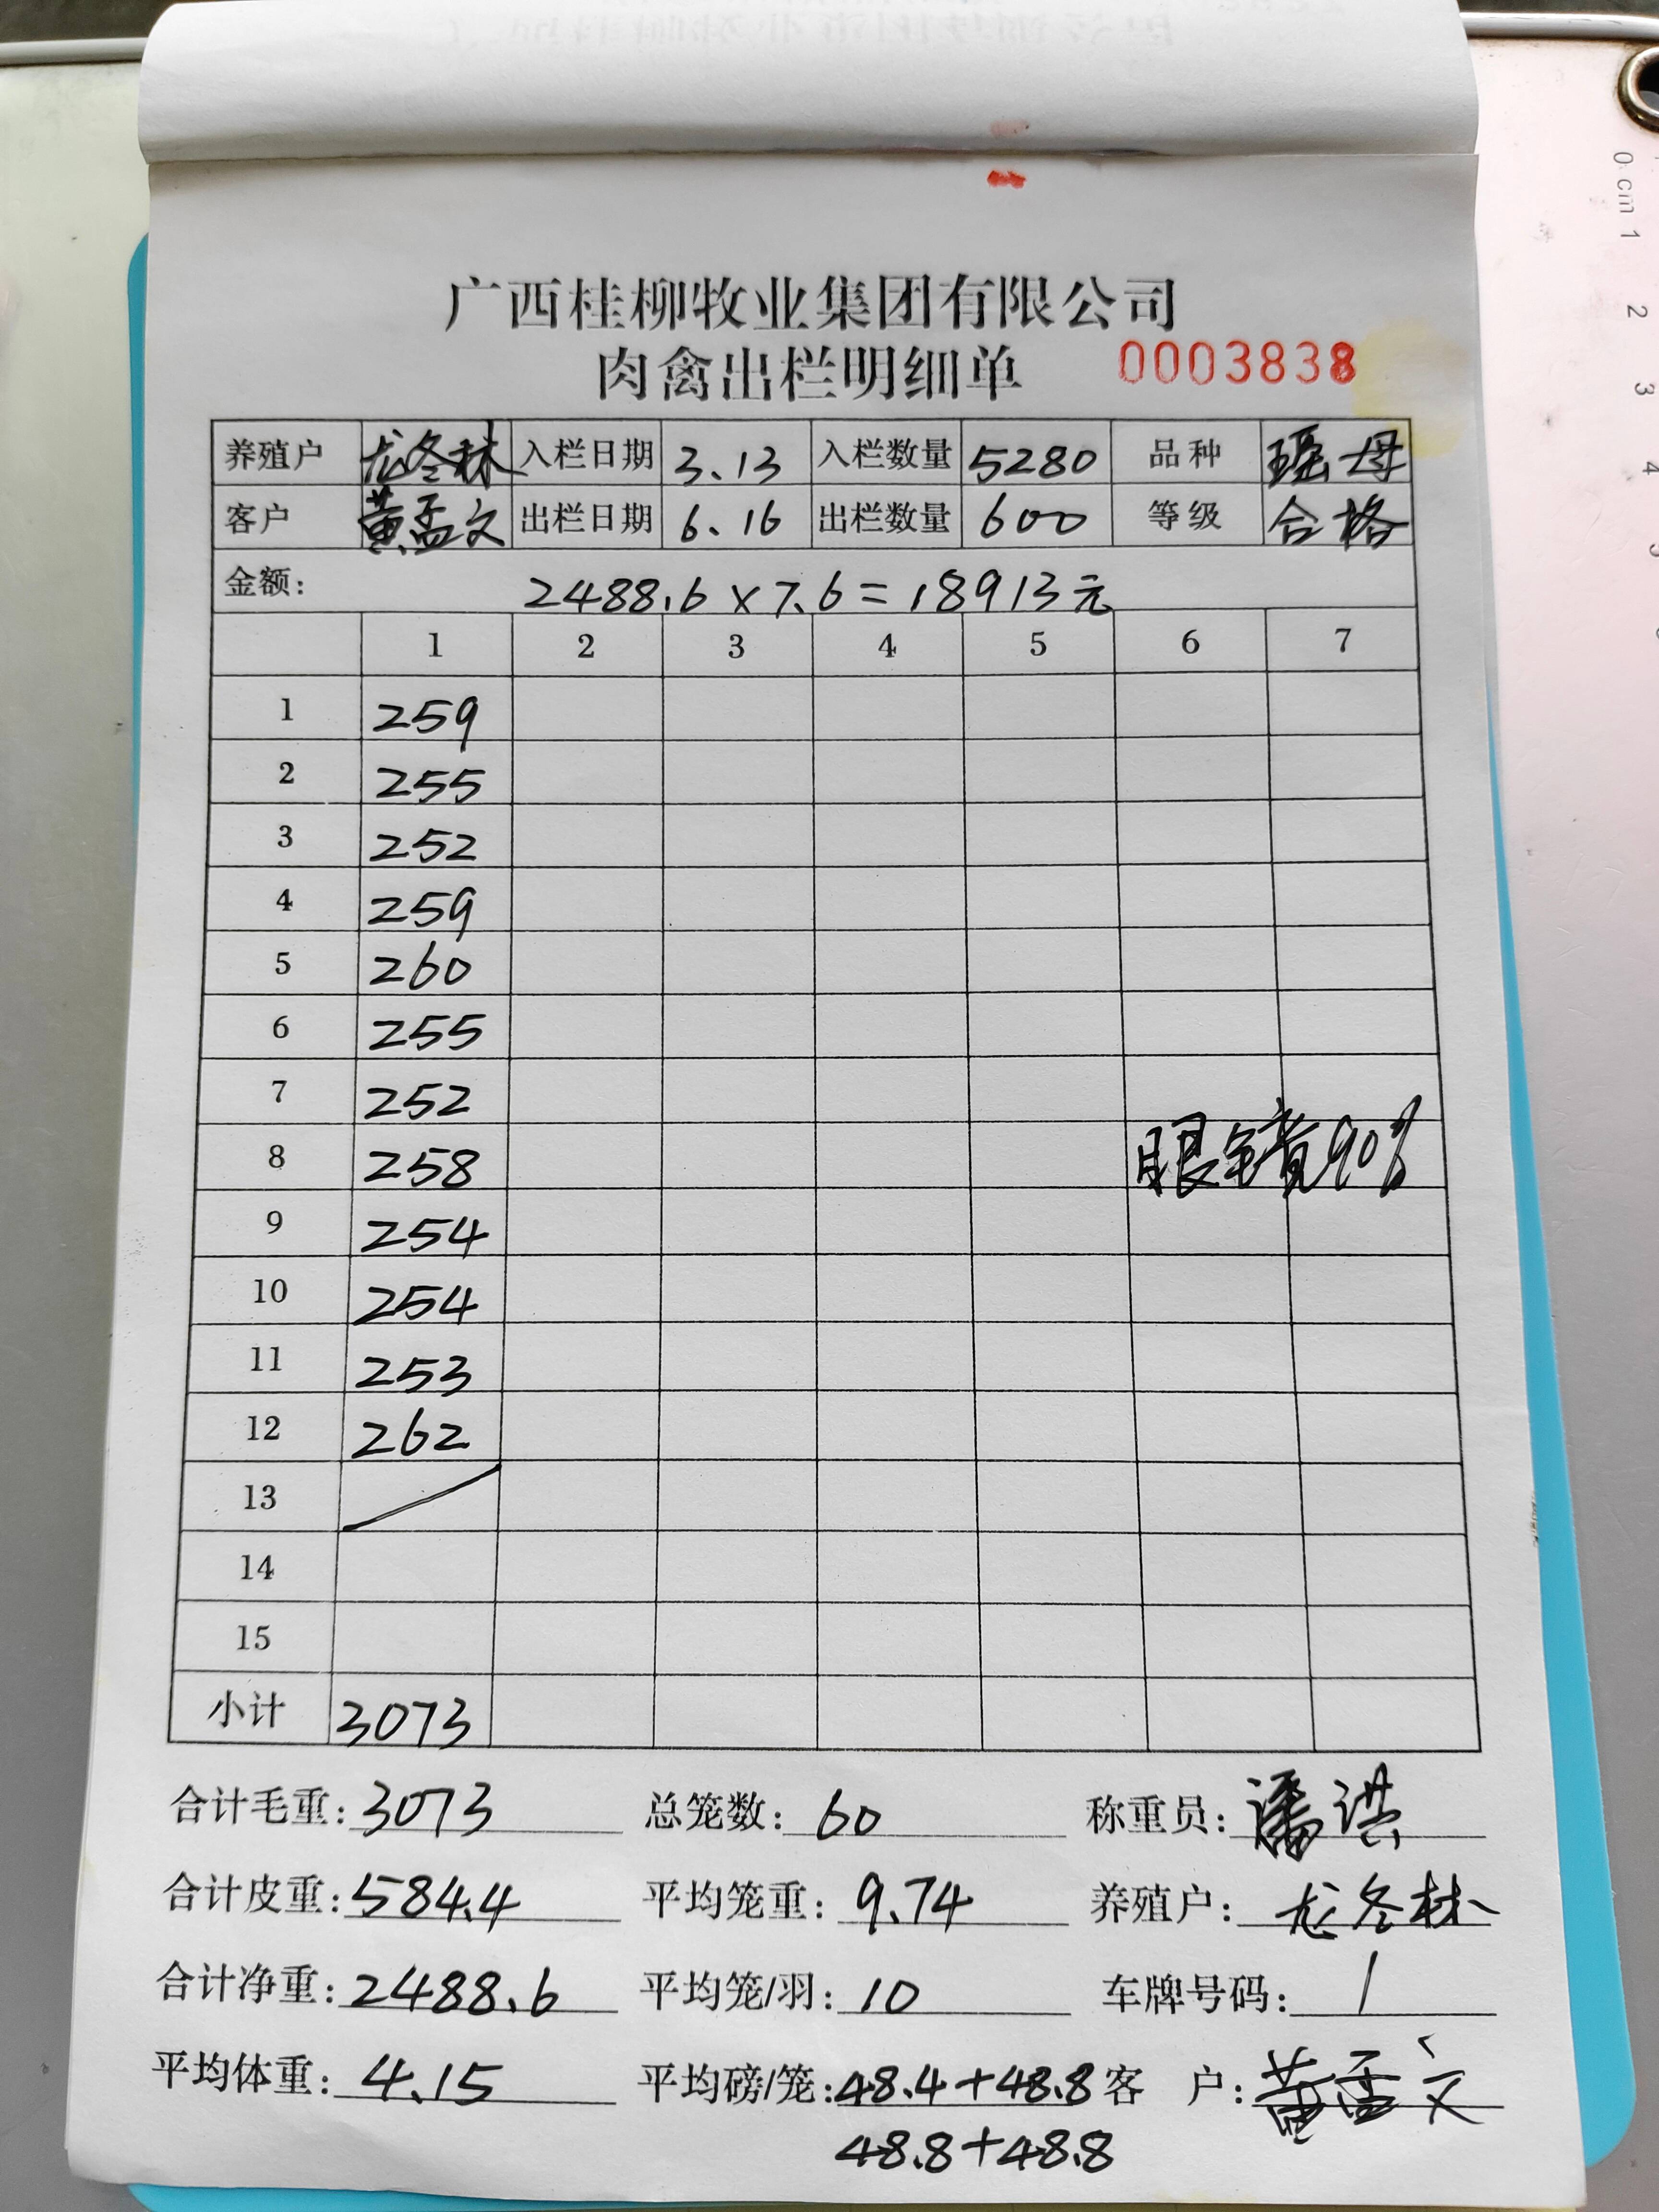 广西桂柳牧业集团有限公司
肉禽出栏明细单 0003838
养殖户 龙冬林 入栏日期 3.13 入栏数量 5280 品种 瑶母
客户 黄孟文 出栏日期 6.16 出栏数量 600 等级 合格
金额: 2488.6×7.6=18913元
1 2 3 4 5 6 7
1 259
2 255
3 252
4 259
5 260
6 255
7 252
8 258 眼镜90%
9 254
10 254
11 253
12 262
13
14
15
小计 3073
合计毛重: 3073 总笼数: 60 称重员: 潘洪
合计皮重: 584.4 平均笼重: 9.74 养殖户: 龙冬林
合计净重: 2488.6 平均笼/羽: 10 车牌号码: /
平均体重: 4.15 平均磅/笼: 48.4+48.8 客户: 黄孟文
48.8+48.8
0 cm 1
2
3
4